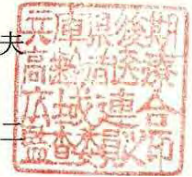 夫
二
兵庫県後期
高齢者医療
広域連合
監査委員印